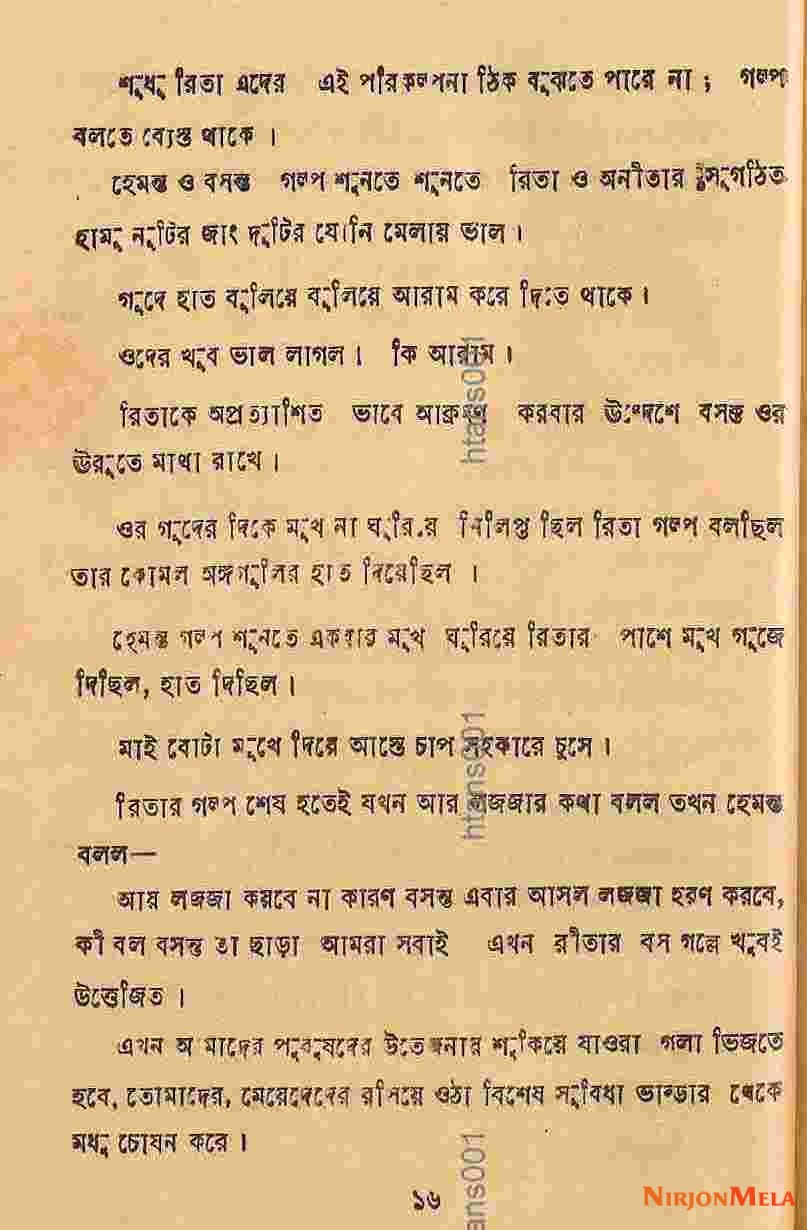 শুধু রিতা এদের এই পরিকল্পনা ঠিক বুঝতে পারে না ; গল্প
বলতে ব্যেস্ত থাকে ।
হেমন্ত ও বসন্ত গল্প শুনতে শুনতে রিতা ও অনীতার সুগঠিত
হামু নুটির জাং দুটির যোনি মেলায় ভাল ।
গুদে হাত বুলিয়ে বুলিয়ে আরাম করে দিতে থাকে ।
ওদের খুব ভাল লাগল । কি আরাম ।
রিতাকে অপ্রত্যাশিত ভাবে আক্রমণ করবার উদ্দেশে বসন্ত ওর
ঊরুতে মাথা রাখে ।
ওর গুদের দিকে মুখ না ঘুরিয়ে নিলিপ্ত ছিল রিতা গল্প বলছিল
তার কোমল অঙ্গগুলির হাত দিয়েছিল ।
হেমন্ত গল্প শুনতে একবার মুখ ঘুরিয়ে রিতার পাশে মুখ গুজে
দিছিল, হাত দিছিল ।
মাই বোটা মুখে দিয়ে আস্তে চাপ সহকারে চুসে ।
রিতার গল্প শেষ হতেই যখন আর লজজার কথা বলল তখন হেমন্ত
বলল—
আয় লজজা করবে না কারণ বসন্ত এবার আসল লজজা হরণ করবে,
কী বল বসন্ত তা ছাড়া আমরা সবাই এখন রীতার বস গল্পে খুবই
উত্তেজিত ।
এখন আমাদের পুরুষদের উতেজনার শুকিয়ে যাওরা গলা ভিজতে
হবে, তোমাদের, মেয়েদেদের রসিয়ে ওঠা বিশেষ সুবিধা ভান্ডার থেকে
মধু চোষন করে ।
১৬
htans001
htans001
ans001
NIRJONMELA